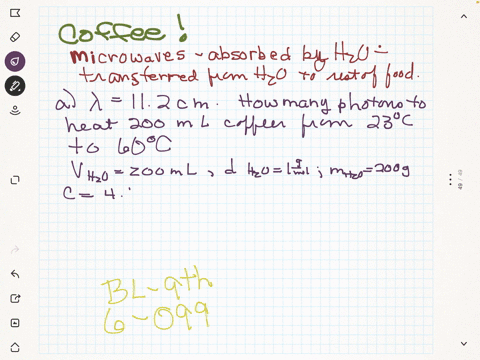 Coffee!
Microwaves ~ absorbed by H2O ÷
transferred from H2O to rest of food.
a) λ = 11.2 cm. How many photons to
heat 200 mL coffee from 23°C
to 60°C
V H2O = 200 mL, d H2O = 1 g/mL; m H2O = 200g
C = 4.
BL-9th
6-099